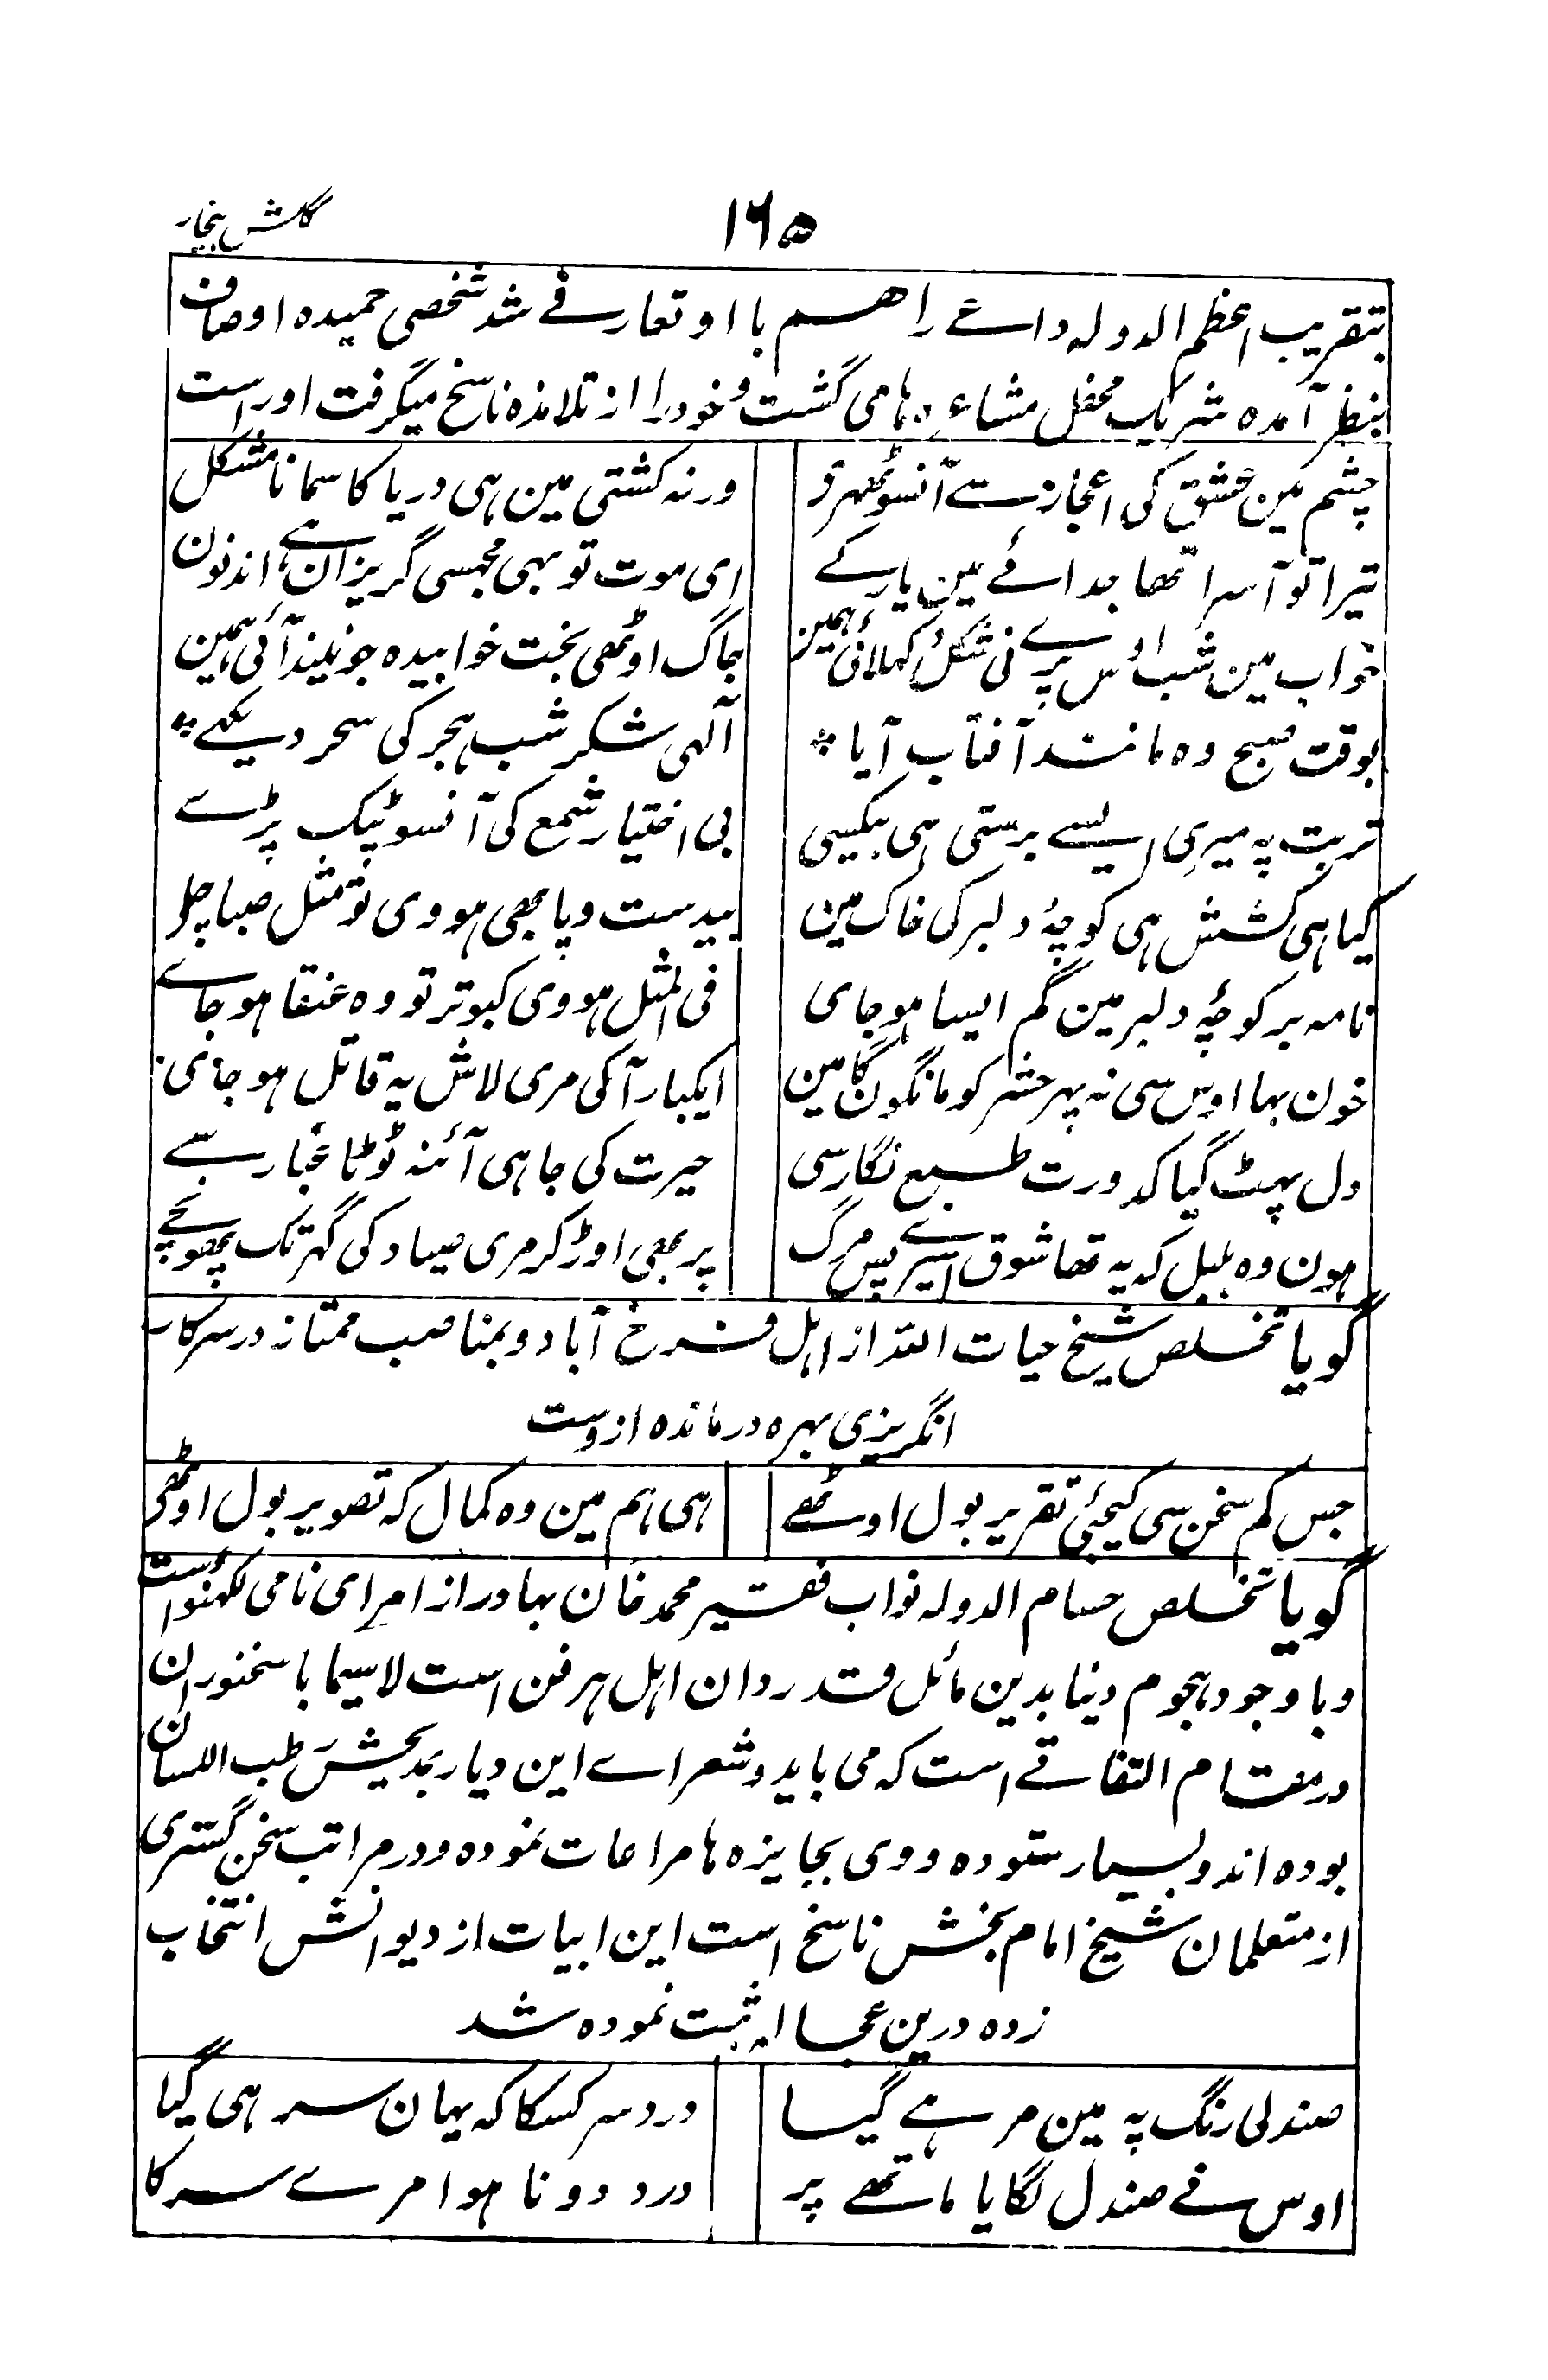 ۱۶۵
گلشن بیخار
بتقریب اعظم الدولہ داعی را ہم با او تعارفے شد شخصی حمیدہ اوصاف
بنظر آمدہ شریک محفل مشاعرہا می گشت و خود را از تلامذہ ناسخ میگرفت اوراست
چشم مین عشق کی اعجاز سے آنسو ٹھہرے ورنہ کشتی مین ہی دریا کا سمانا مشکل
تیرا تو آسرا تھا جدائے مین یار کے ای موت تو بہی مجہسی گریزان ہے اندنون
خواب مین شب اوس پری نی شکل دکہلائی ہمین جاگ اوٹھی بخت خوابیدہ جو نیند آئی ہمین
بوقت صبح وہ مانند آفتاب آیا * آلہی شکر شب ہجر کی سحر دیکہے *
تربت پہ میری ایسے برستی ہی بیکسی بی اختیار شمع کی آنسو ٹپک پڑے
کیا ہی کشش ہی کوچۂ دلبر کی خاک مین بیدست و پا بھی ہووی تو مثل صبا چلے
نامہ بر کوچۂ دلبر مین گم ایسا ہو جای فی المثل ہووی کبوتر تو وہ عنقا ہو جاے
خون بہا اوس سی نہ پہر حشر کو مانگون گا مین ایکبار آکی مری لاش پہ قاتل ہو جائی
دل پہٹ گیا کدورت طبع نگار سی حیرت کی جا ہی آئنہ ٹوٹا غبار سے
ہون وہ بلبل کہ یہ تھا شوق اسیرے پس مرگ پر بھی اوڑ کر مری صیاد کی گہر تک پھونچے
گویا تخلص شیخ حیات اللہ از اہل فرخ آباد و بمناصب ممتاز در سرکار
انگریزی بہرہ در ماندہ ازوست
جس کم سخن سی کیجئی تقریر بول اوٹھے ہی ہم مین وہ کمال کہ تصویر بول اوٹھی
گویا تخلص حسام الدولہ نواب فقیر محمد خان بہادر از امرای نامی لکہنؤ است
و با وجود ہجوم دینا بدین مائل و قدردان اہل ہر فن است لاسیما با سخنوران
در مقام التفاتے است کہ می باید و شعراے این دیار بمدیحش رطب اللسان
بودہ اند و بسیار ستودہ و وی بجایزہ ہا مراعات نمودہ و در مراتب سخن گستری
از متعلمان شیخ امام بخش ناسخ است این ابیات از دیوانش انتخاب
زدہ درین عجالہ ثبت نمودہ شد
صندلی رنگ پہ مین مر ہے گیا درد سر کسکا کہ یہان سر ہی گیا
اوس نے صندل لگایا ماتھے پر درد دونا ہوا مرے سر کا